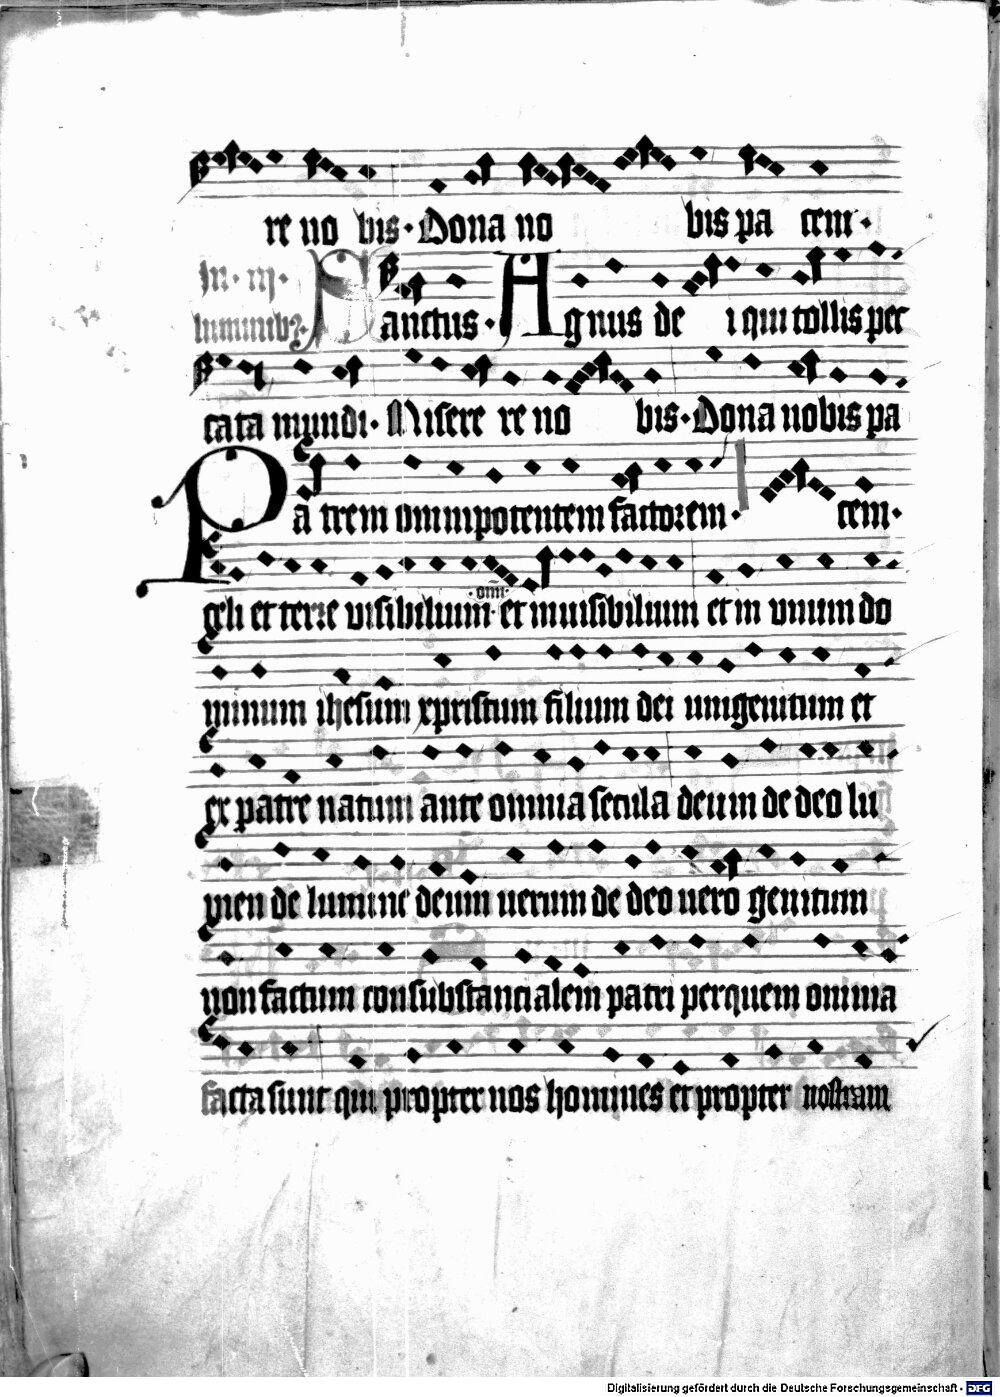 re no bis · Dona no bis pa cem ·
In · iij ·
luminibꝫ · Sanctus · Agnus de i qui tollis pec
cata mundi · Misere re no bis · Dona nobis pa
Pa trem omnipotentem factorem · cem ·
celi et terre visibilium · om̅ · et inuisibilium et in vnum do
minum ihesum xpristum filium dei unigenitum et
ex patre natum ante omnia secula deum de deo lu
men de lumine deum uerum de deo uero genitum
non factum consubstancialem patri per quem omnia
facta sunt qui propter nos homines et propter nostram
Digitalisierung gefördert durch die Deutsche Forschungsgemeinschaft - DFG